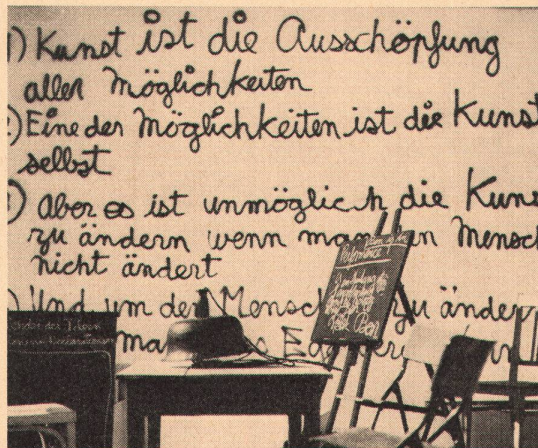 1) Kunst ist die Ausschöpfung
aller Möglichkeiten
2) Eine der Möglichkeiten ist die Kunst
selbst
3) Aber es ist unmöglich die Kuns
zu ändern wenn man den Mensch
nicht ändert
Und um den Mensch zu änder
ma
der Ideen